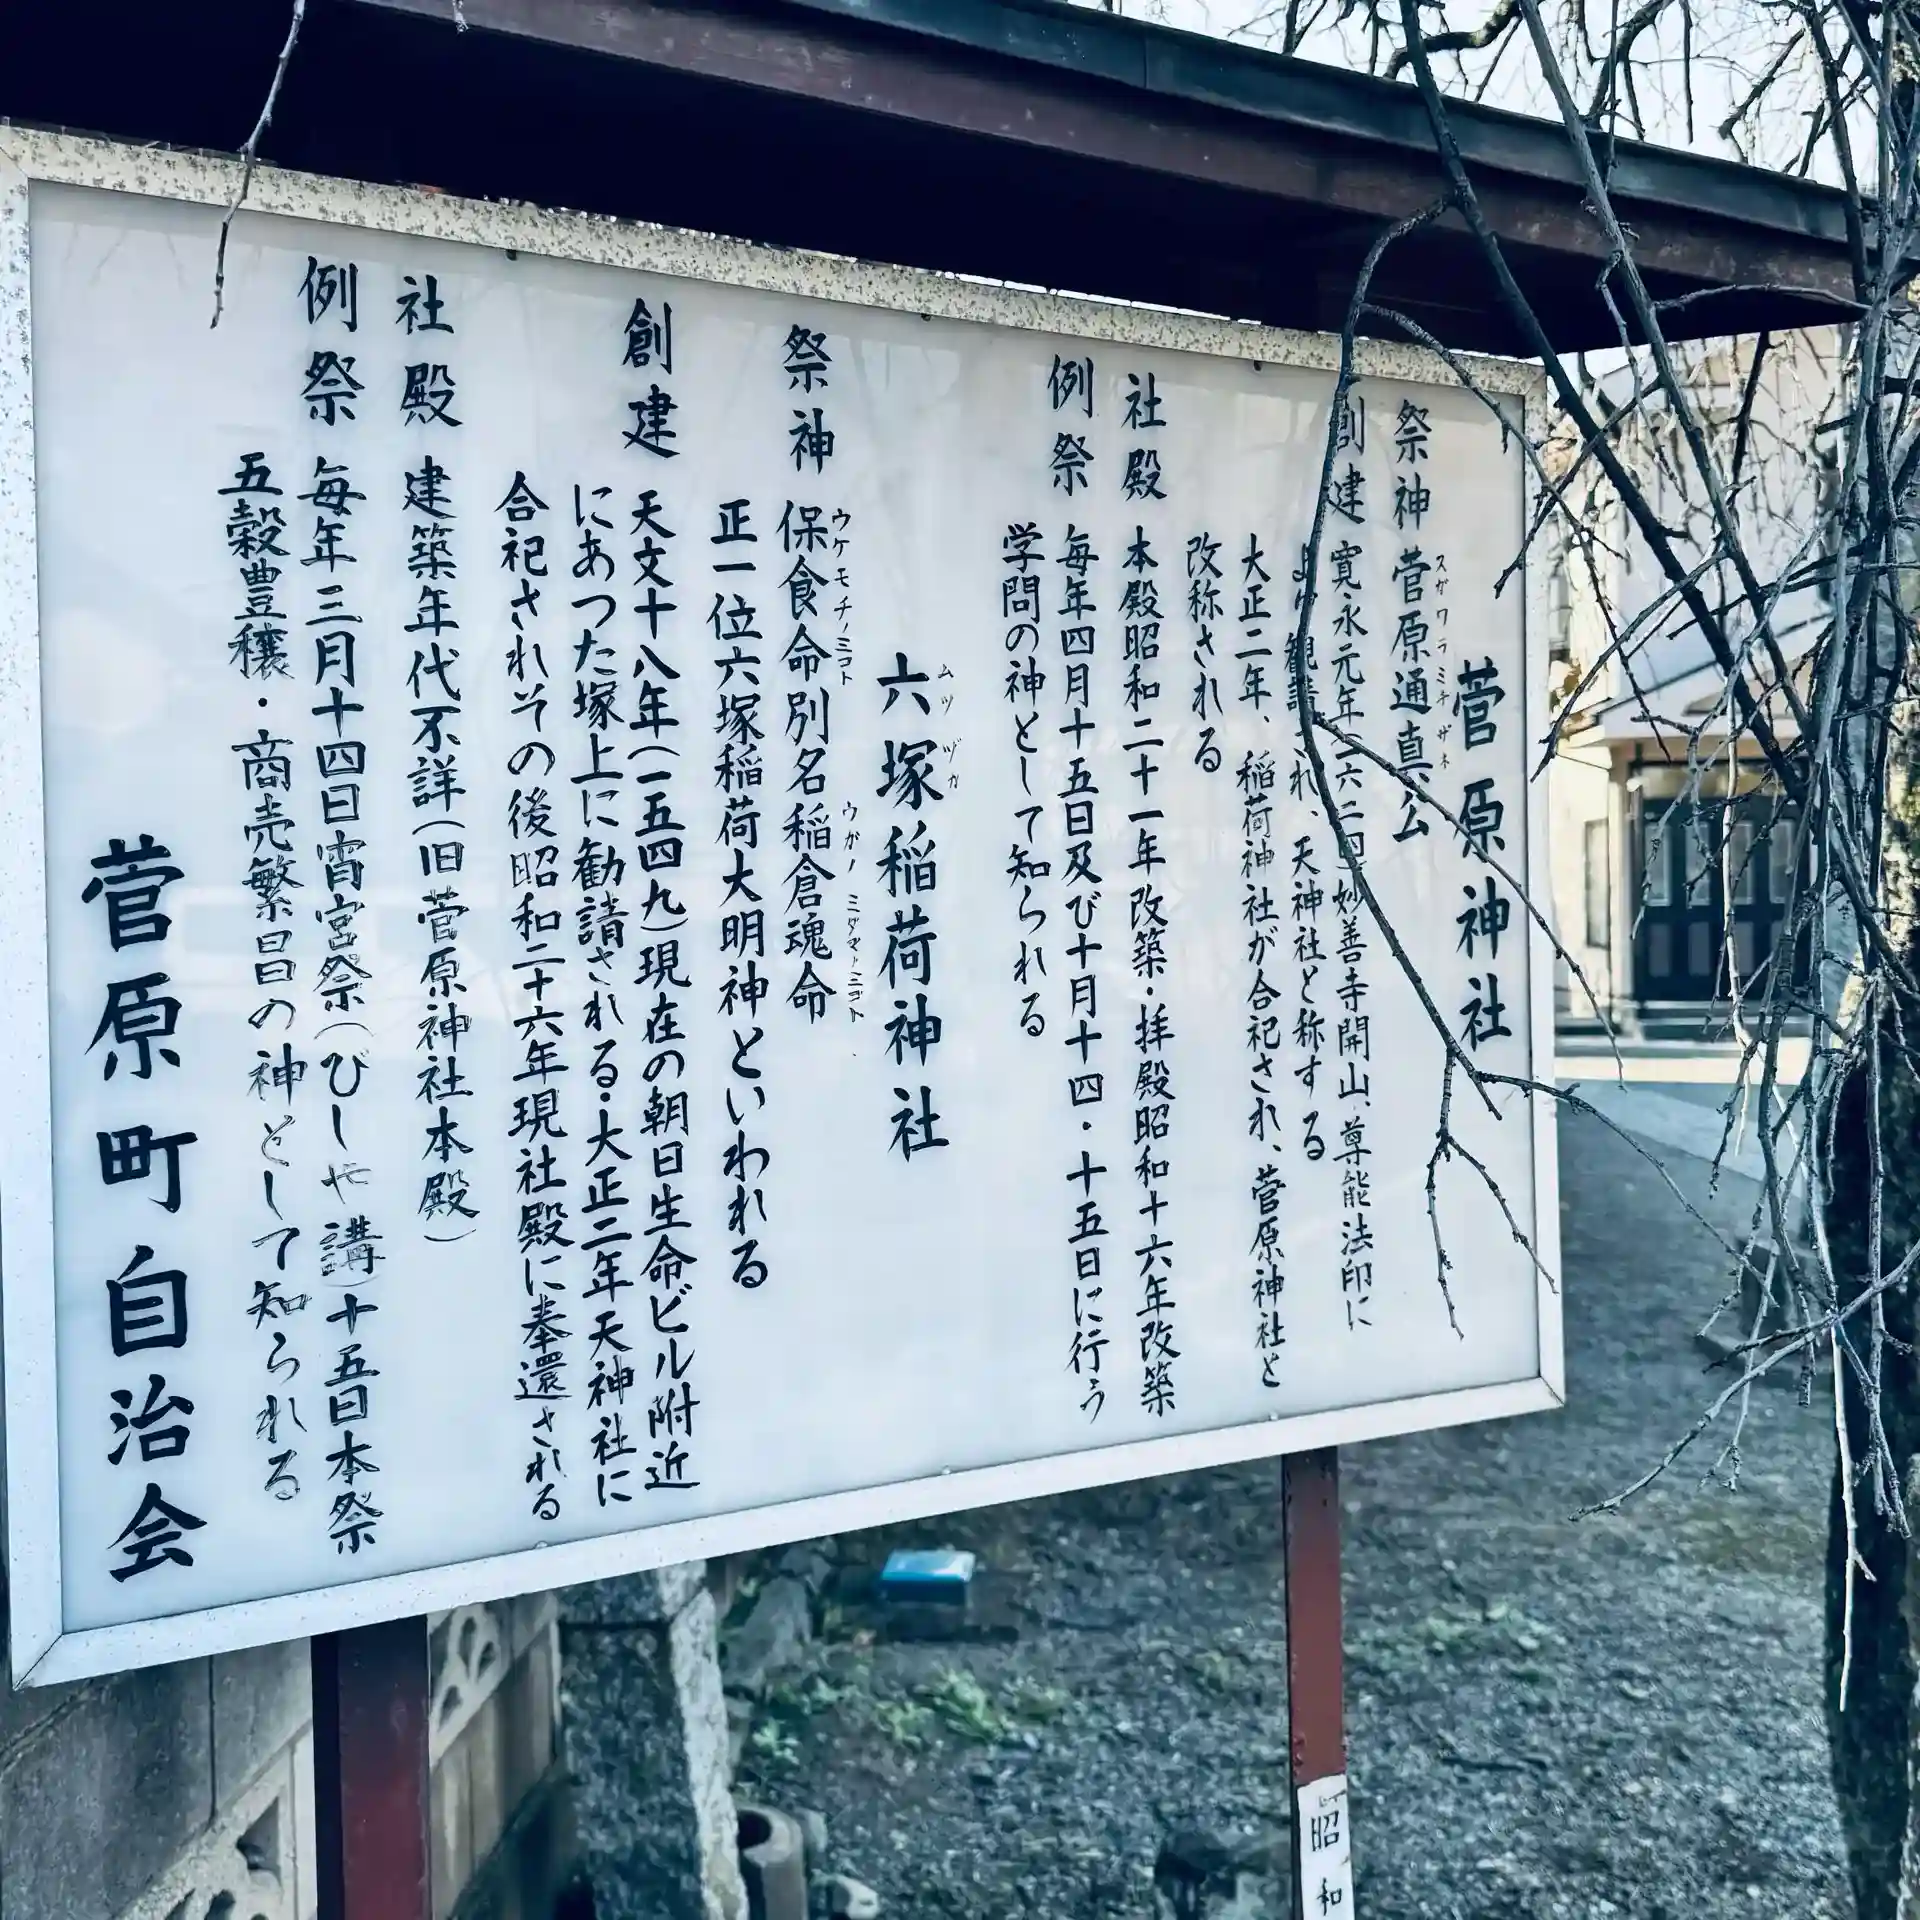 菅原神社
祭神 菅原道真公
スガワラミチザネ
創建 寛永元年(一六二四)妙善寺開山、尊能法印に
より観請され、天神社と称する
大正二年、稲荷神社が合祀され、菅原神社と
改称される
社殿 本殿昭和二十一年改築・拝殿昭和十六年改築
例祭 毎年四月十五日及び十月十四・十五日に行う
学問の神として知られる
六塚稲荷神社
ムツヅカ
祭神 保食命別名稲倉魂命
ウケモチノミコト ウガノミタマノミコト
正一位六塚稲荷大明神といわれる
創建 天文十八年(一五四九)現在の朝日生命ビル附近
にあつた塚上に勧請される・大正二年天神社に
合祀されその後昭和二十六年現社殿に奉還される
社殿 建築年代不詳(旧菅原神社本殿)
例祭 毎年三月十四日宵宮祭(びしゃ講)十五日本祭
五穀豊穣・商売繁昌の神として知られる
菅原町自治会
昭和